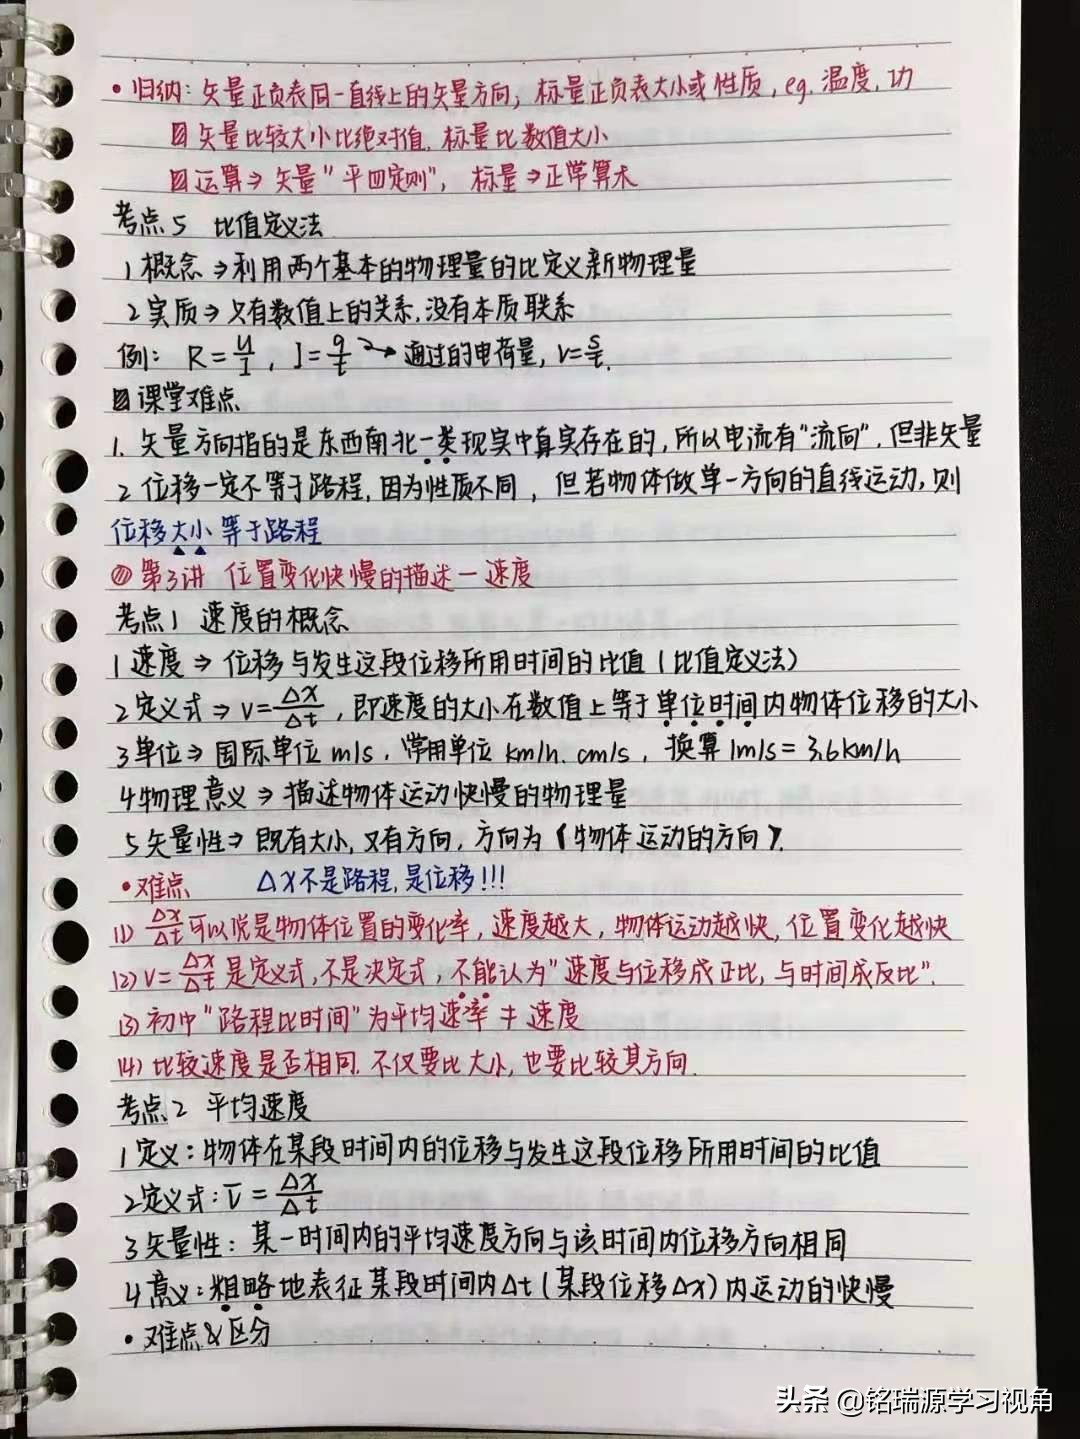 • 归纳：矢量正负表同一直线上的矢量方向，标量正负表大小或性质，eg. 温度，功
矢量比较大小比绝对值，标量比数值大小
运算⇒矢量"平四定则"，标量⇒正常算术
考点5 比值定义法
1 概念⇒利用两个基本的物理量的比定义新物理量
2 实质⇒只有数值上的关系，没有本质联系
例：R=U/I，I=q/t→通过的电荷量，V=S/t.
课堂难点
1. 矢量方向指的是东西南北一类现实中真实存在的，所以电流有"流向"，但非矢量
2 位移一定不等于路程，因为性质不同，但若物体做单一方向的直线运动，则
位移大小等于路程
第3讲 位置变化快慢的描述—速度
考点1 速度的概念
1 速度⇒位移与发生这段位移所用时间的比值（比值定义法）
2 定义式⇒V=Δx/Δt，即速度的大小在数值上等于单位时间内物体位移的大小
3 单位⇒国际单位 m/s，常用单位 km/h. cm/s，换算 1m/s=3.6km/h
4 物理意义⇒描述物体运动快慢的物理量
5 矢量性⇒既有大小，又有方向，方向为（物体运动的方向）.
• 难点 Δx不是路程，是位移!!!
(1) Δx/Δt可以说是物体位置的变化率，速度越大，物体运动越快，位置变化越快
(2) V=Δx/Δt是定义式，不是决定式，不能认为"速度与位移成正比，与时间成反比".
(3) 初中"路程比时间"为平均速率≠速度
(4) 比较速度是否相同，不仅要比大小，也要比较其方向.
考点2 平均速度
1 定义：物体在某段时间内的位移与发生这段位移所用时间的比值
2 定义式：V̄=Δx/Δt
3 矢量性：某一时间内的平均速度方向与该时间内位移方向相同
4 意义：粗略地表征某段时间内Δt（某段位移Δx）内运动的快慢
• 难点&区分
头条 @铭瑞源学习视角